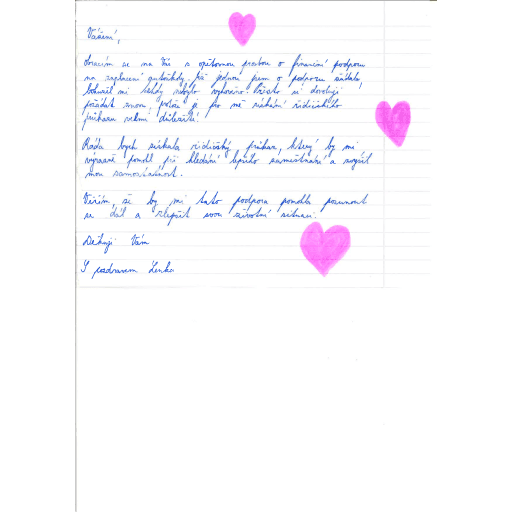 Vážení,
obracím se na Vás s opětovnou prosbou o finanční podporu
na zaplacení autoškoly. Již jednou jsem o podporu žádala,
bohužel mi tehdy nebylo vyhověno. Přesto si dovoluji
požádat znovu, protože je pro mě získání řidičského
průkazu velmi důležité.
Ráda bych získala řidičský průkaz, který by mi
výrazně pomohl při hledání lepšího zaměstnání a zvýšil
mou samostatnost.
Věřím, že by mi tato podpora pomohla posunout
se dál a zlepšit svou životní situaci.
Děkuji Vám
S pozdravem Lenka